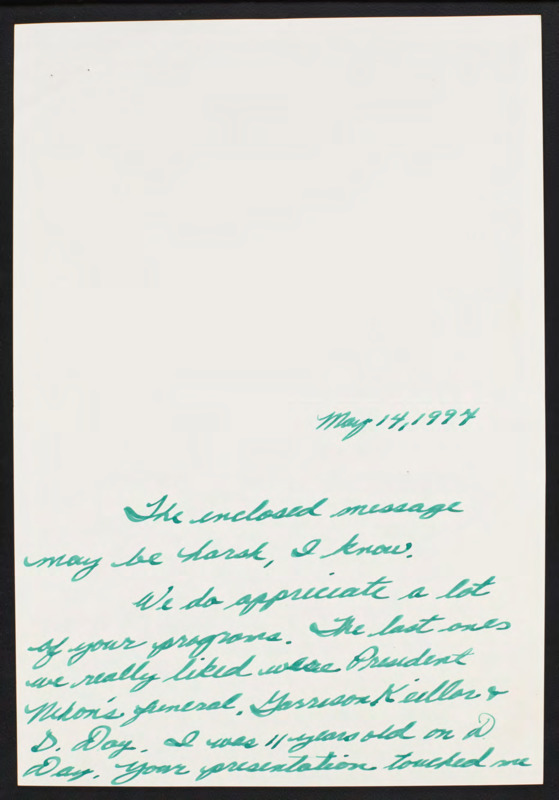 May 14, 1994
The enclosed message
may be harsh, I know.
We do appriciate a lot
of your programs. The last ones
we really liked were President
Nixon's funeral, Garrison Keillor &
D. Day. I was 11 years old on D
Day. Your presentation touched me